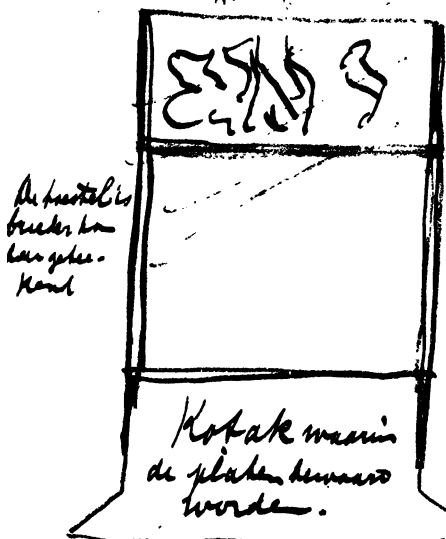 De toestel is
breeder dan
hier getee-
kend
Kotak waarin
de platen bewaard
worden.